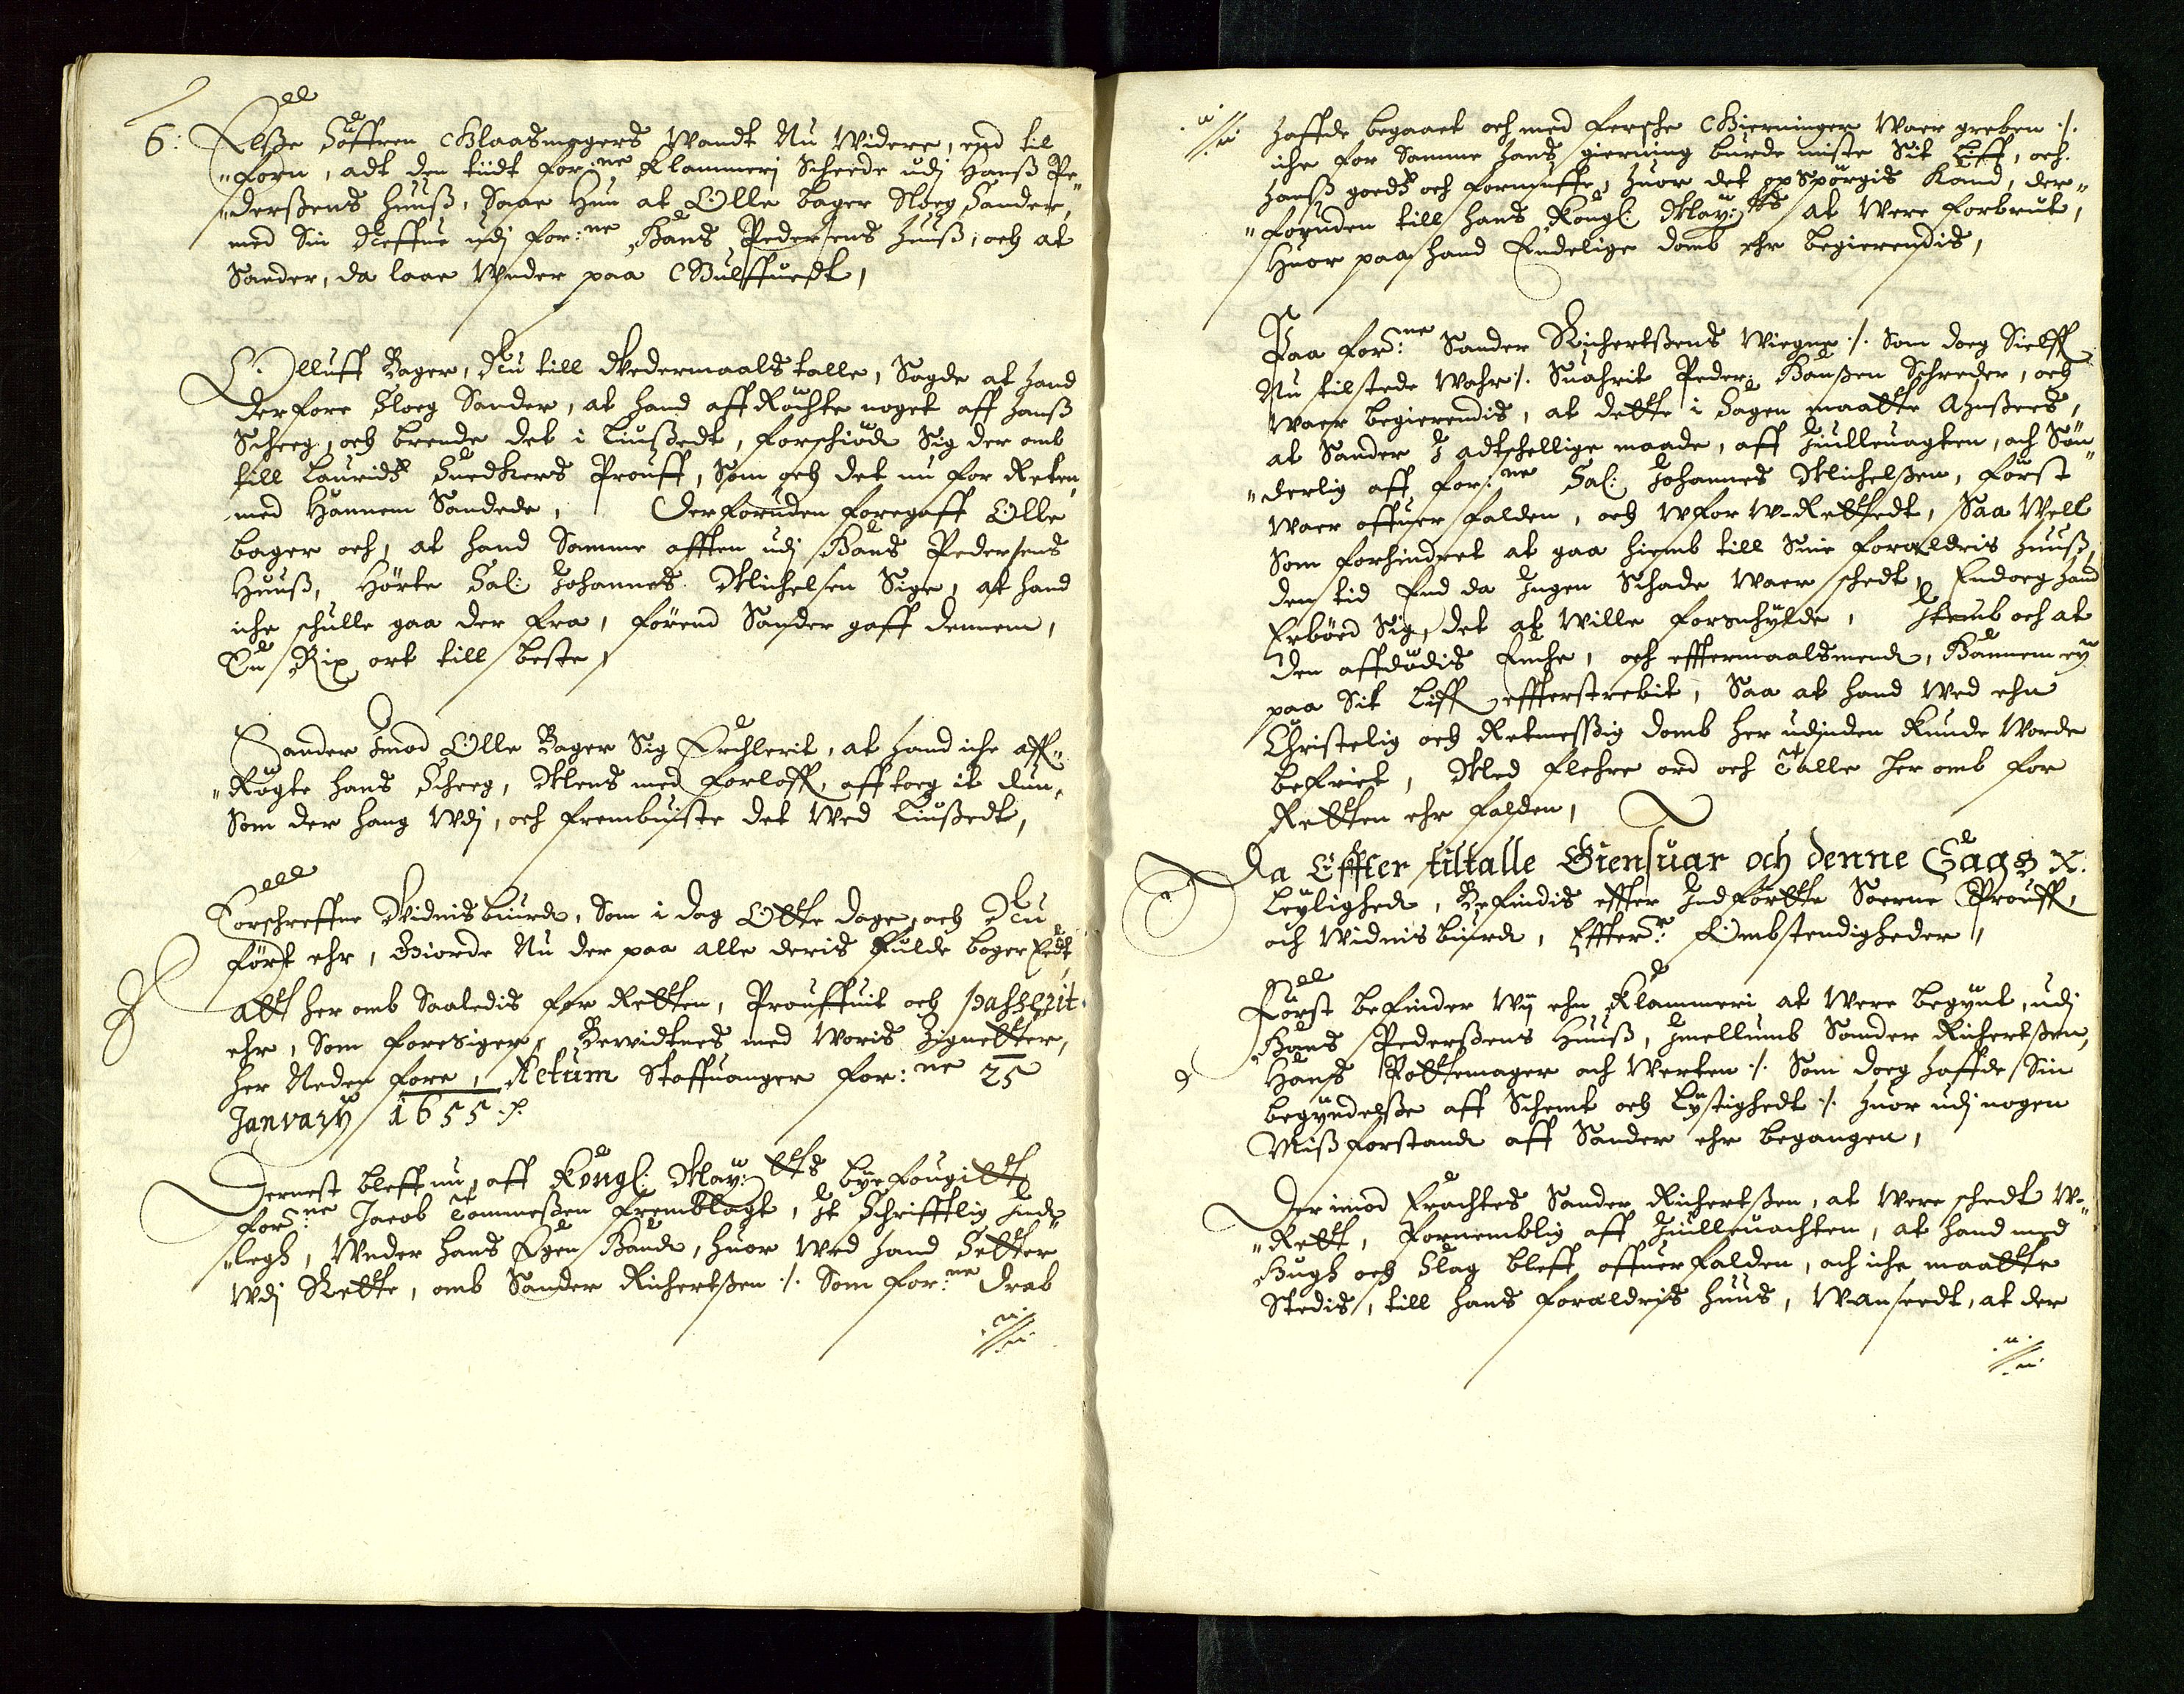 6: Elße Söffren Glaasmagers Wandt Nu Widere, end til
"forn, adt den tiidt for:ne Klammeri Scheede udj Hanß Pe"
"derßens Huuß, Saae Hun at Olle bager Sloeg Sander,
med Sin Neffue udj for:ne Hans Pedersens Huuß, och at
Sander, da laae Under paa Gulffuedt,
Olluff Bager, Nu till Wedermaals talle, Sagde at hand
derfore Sloeg Sander, at hand aff Röchte noget aff hanß
Scheeg, och brende det i liußedt, forschiöd Sig der omb
till Lauridtz Snedkers Prouff, Som och det nu for Reten
med Hannem Sandede, Derforuden foregaff Olle
bager och, at hand Samme afften udj Hans Pedersens
Huuß, Hörte Sal: Johannes Michelsen Sige, at hand
iche schulle gaa der fra, förend Sander gaff dennem,
En Rix ort till beste,
Sander Jmod Olle Bager Sig Erchlerit, at hand iche aff"
"Rögte hans Scheeg, Mens med forloff, afftoeg it dun,
Som der hang Udj, och frembuiste det Wed Liußedt,
Forschreffne Widnisbiurd, Som i dag Otte dage, och Nu
fört ehr, Giorde Nu der paa alle deris fulde boger Eedt,
Alt her omb Saaledis for Retten, Prouffuit och passerit
ehr, Som foresiger, Bewidtnes med Woris Zignetter,
her Neden fore, Actum Staffuanger for:ne 25
January 1655 .
Dernest bleff nu, aff Kongl: May:tts byefougitt
for:ne Jacob Tommeßen fremblagt, It Schrifftlig Ind"
"legh, Under hans Egen Hand, huor Wed hand Setter
Udj Rette, omb Sander Richertßen ./. Som for:ne Drab
haffde begaaet och med fersche Gierninger Waer greben ./.
iche for Samme hans gierning burde miste Sit Liff, och
hanß goedtz och formuffe, huor det opSpörgis Kand, der"
"foruden till hans Kongl: May:tts at Were forbrut,
Huor paa hand Endelige domb ehr begierendis,
Paa for:ne Sander Richertßens Wiegne ./. Som doeg Sielff
Nu tilstede Wahr ./. Suahrit Peder Hanßen Schreder, och
Waer begierendis, at dette i Sagen maatte Ansees,
at Sander I adtschellige maade, aff Juulleuagten, och Sön"
"derlig aff for:ne Sal: Johannes Michelßen, först
Waer offuer falden, och UforU-Rettedt, Saa Well
Som forhindret at gaa hiemb till Sine foreldris Huuß,
den tid End da Ingen Schade Waer schedt, Endoeg hand
Erböed Sig, det at Wille forschylde, Itemb och at
den affdödis Enche, och efftermaalsmend, Hannem ey
paa Sit Liff effterstrebit, Saa at hand Wed ehn
Christelig och Retmessig domb her udjnden Kunde Worde
befriet, Med flehre ord och Talle her omb for
Retten ehr falden,
Da Effter tiltalle Giensuar och denne Sags
Leylighed, Befindis effter Indförtte Soerne Prouff,
och Widnisbiurd, Effter:ne Ombstendigheder,
Först befinder Wij ehn Klammeri at Were begynt, udj
Hans Pederßens Huuß, Jmellumb Sander Richertßen,
Hans Pottemager och Werten ./. Som doeg haffde Sin
begyndelße aff Schemt och Lystighedt ./. huor udj nogen
Mißforstand aff Sander ehr begangen,
Der imod Erachtes Sander Richertßen, at Were schedt U"
"Rett, fornemblig aff Juulleuachten, at hand med
Hugh och Slag bleff offuerfalden, och iche maatte
Stedis, till hans foreldris huus, Wanseedt, at der